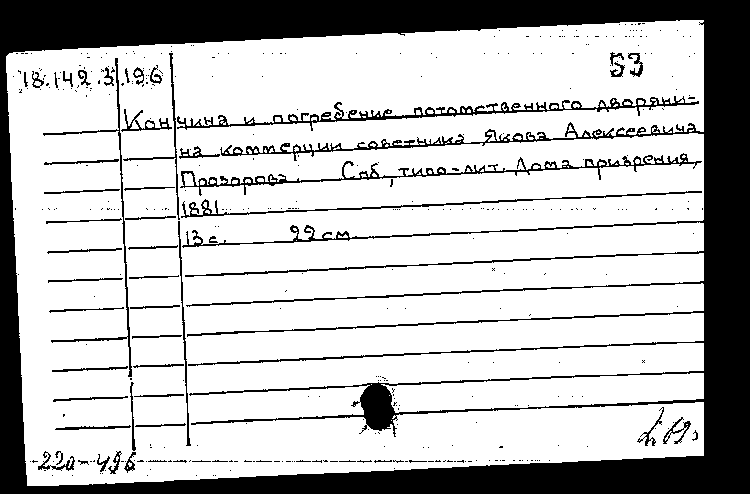 18.142.3.196
53
Кончина и погребение потомственного дворяни-
на коммерции советника Якова Алексеевича
Прозорова. Спб., типо-лит. Дома призрения,
1881.
13 с. 22 см.
22а-496